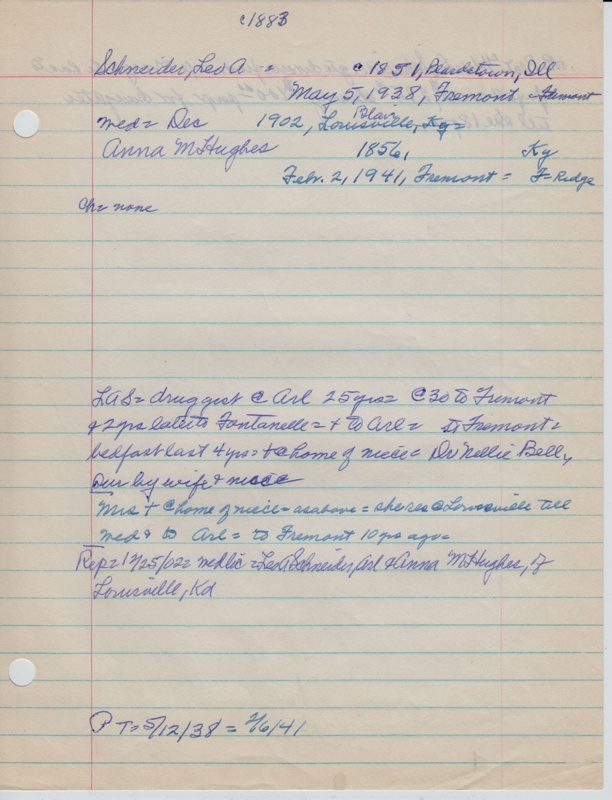 c1883
Schneider, Leo A. = c 1851, Beardstown, Ill
May 5, 1938, Fremont =
Med = Dec 1902, Blair Louisville, Ky =
Anna McHughes 1856, Ky
Feb. 2, 1941, Fremont = F= Ridge
Ch= none
LAS= druggist @ Arl 25 yrs= C30 to Fremont
& 2 yrs later to Fontanelle = + to Arl = to Fremont =
bedfast last 4 yrs = + @ home of niece = Dr Nellie Bell,
Sur by wife & niece
Mrs + @ home of niece = as above = she res @ Louisville till
med & to Arl = to Fremont 10 yrs ago =
Rep= 12/25/02 = Med lic = Leo Schneider, Arl & Anna McHughes, of
Louisville, Kd
P T= 5/12/38 = 2/6/41